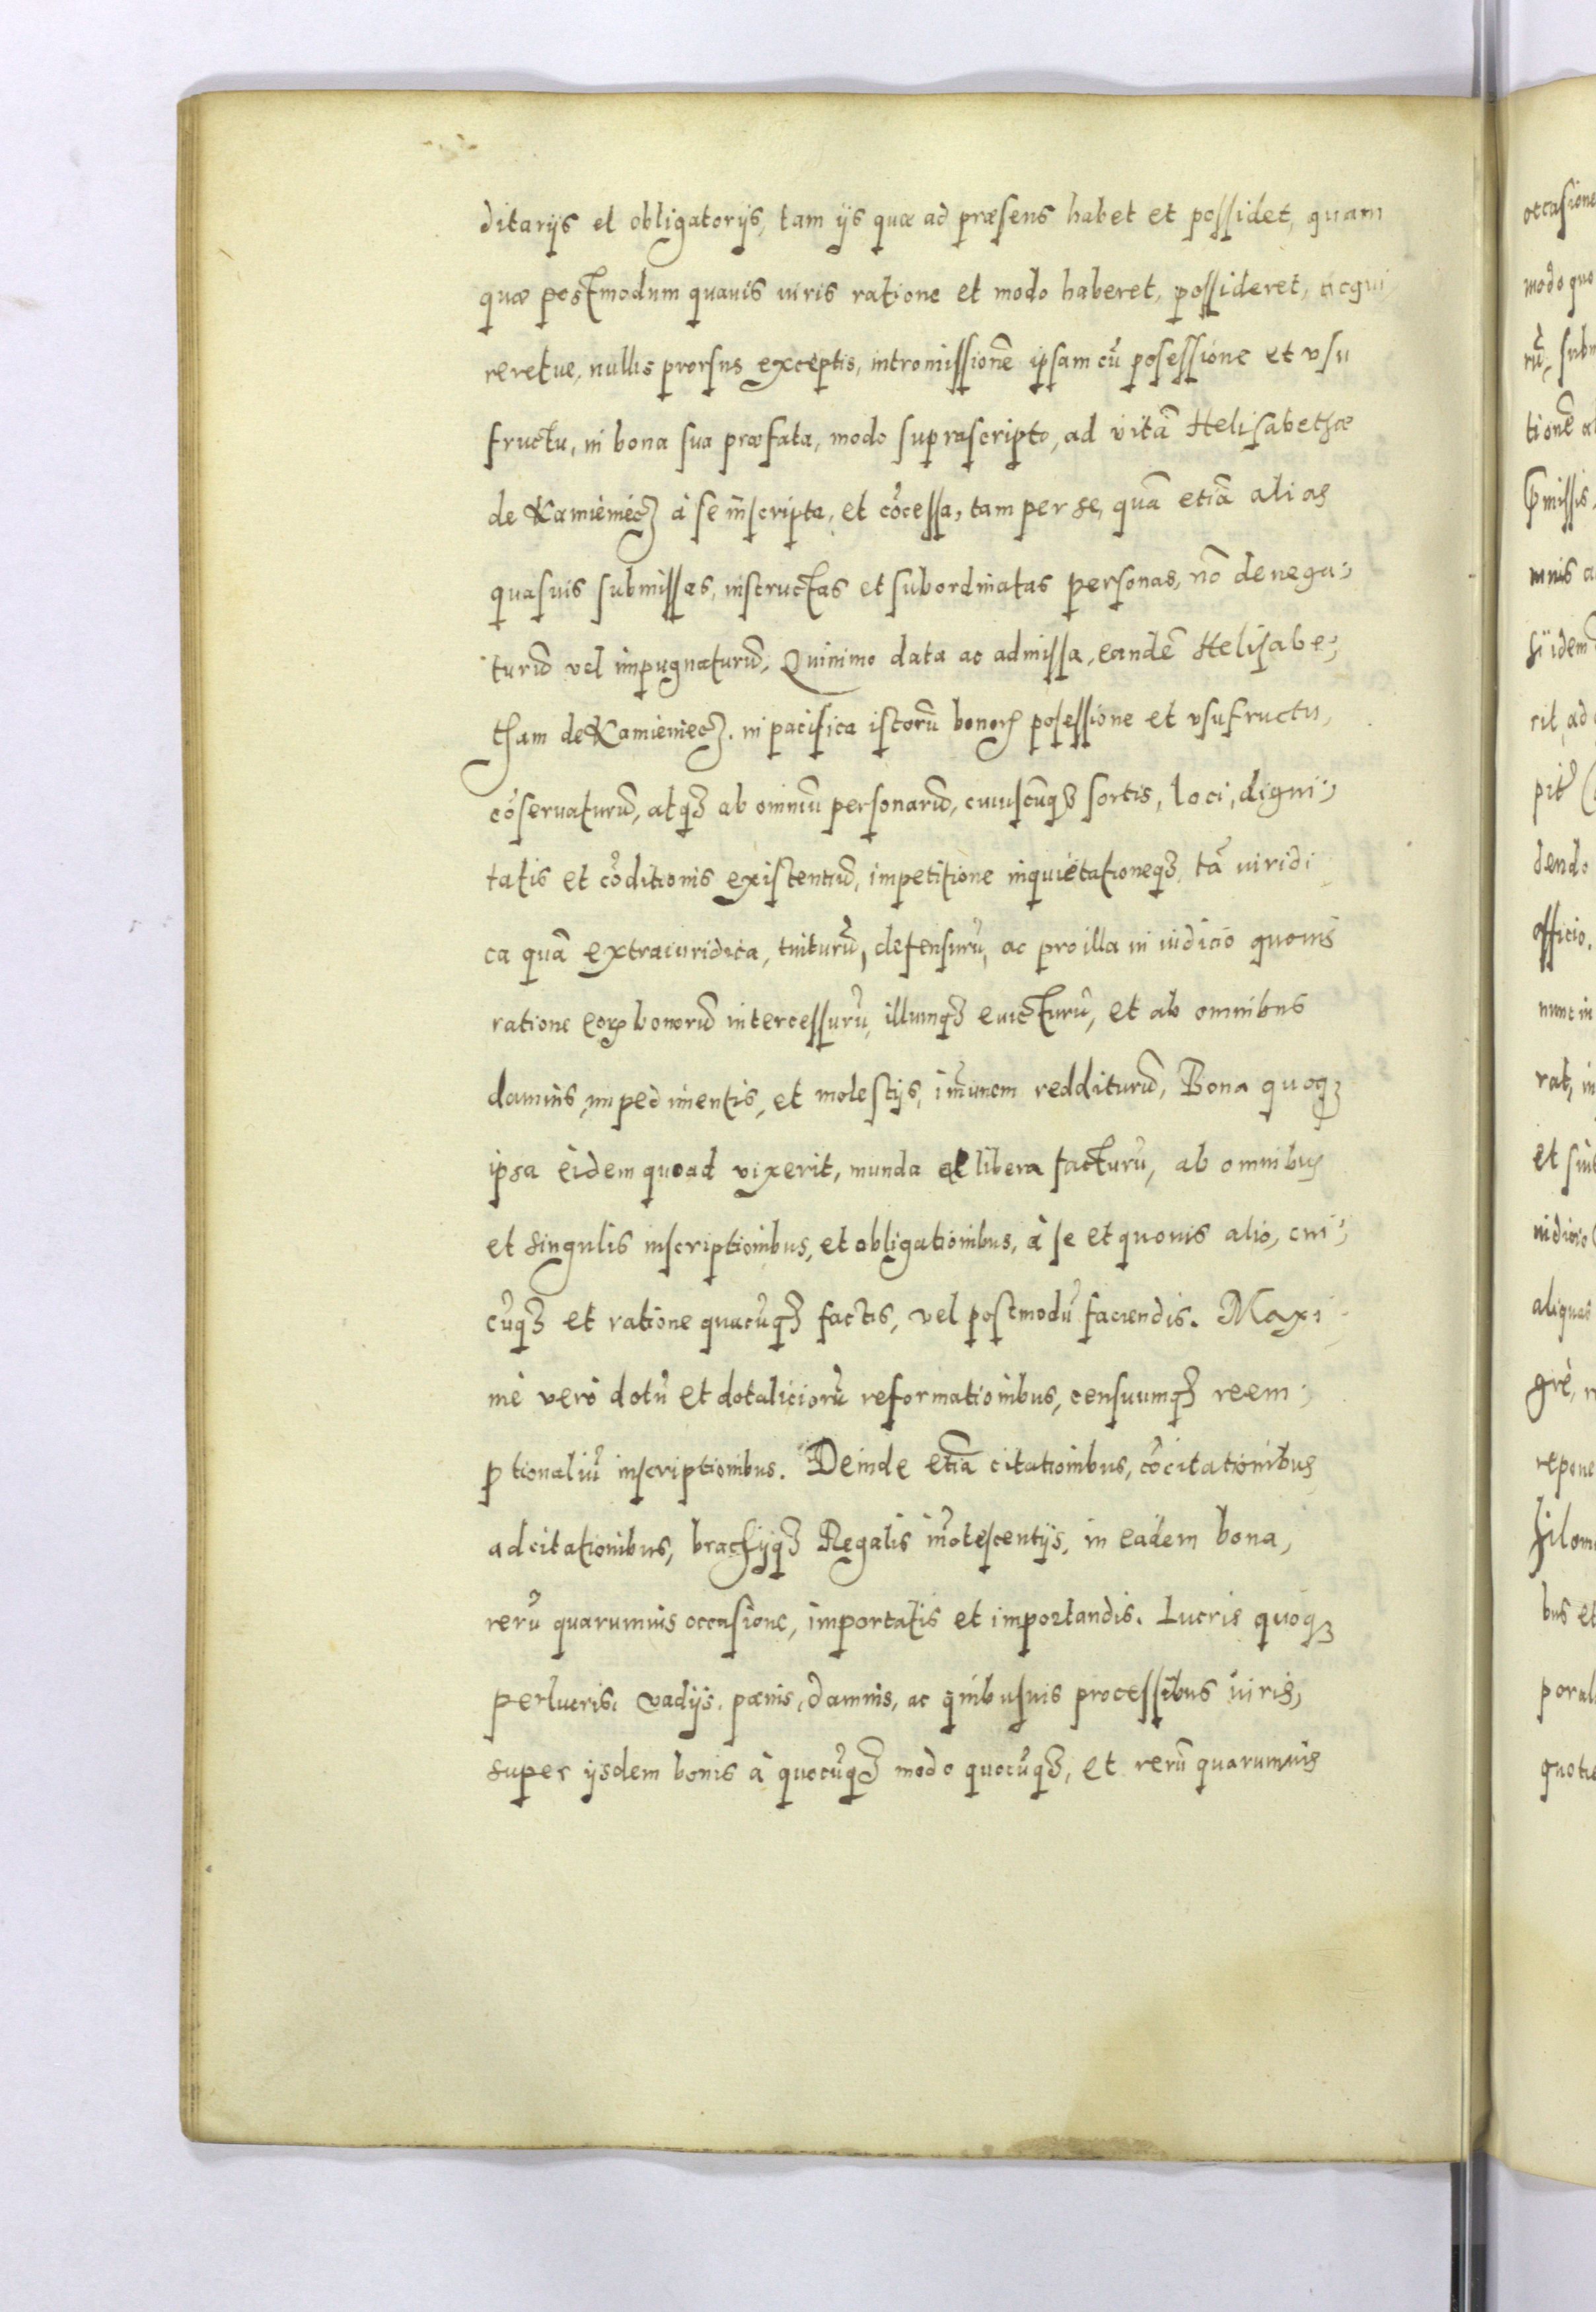 ditarijs et obligatorijs, tam ijs quæ ad præsens habet et possidet, quam
quæ postmodum quauis iuris ratione et modo haberet, possideret, acqui
reretue, nullis prorsus exceptis, intromissionē ipsam cū posessione et vsu
fructu, in bona sua præfata, modo suprascripto, ad vitā Helisabethæ
de Kamieniecz à se inscripta, et cōcessa, tam per se, quā etiā alias
quasuis submissas, instructas et subordinatas personas, nō denega:
turū vel impugnaturū, Quinimo data ac admissa, eandē Helisabe:
tham de Kamieniecz. in pacifica istorū bonorꝝ posessione et vsufructu,
cōseruaturū, atqꝫ ab omniū personarū, cuiuscūqꝫ sortis, loci, digni:
tatis et cōditionis existentiū, impetitione inquietationeqꝫ, tā iuridi
ca quā extraiuridica, tuiturū, defensurū, ac pro illa in iudicio quouis
ratione eorꝝ bonorū intercessurū, illumqꝫ euicturū, et ab omnibus
damnis, impedimentis, et molestijs, im̄unem redditurū, Bona quoqꝫ
ipsa eidem quoad vixerit, munda et libera facturū, ab omnibus
et singulis inscriptionibus, et obligationibus, à se et quouis alio, cui:
cūqꝫ et ratione quacūqꝫ factis, vel postmodū faciendis. Maxi
mè verò dotū et dotaliciorū reformationibus, censuumqꝫ reem:
ptionaliū inscriptionibus. Deinde etiā citationibus, cōcitationibus
adcitationibus, brachijqꝫ Regalis in̄otescentijs, in eadem bona,
rerū quarumuis occasione, importatis et importandis. Lucris quoqꝫ
perlucris. vadijs. pænis, damnis, ac quibusuis processibus iuris,
super ijsdem bonis à quocūqꝫ modo quocūqꝫ, et rerū quarumuis